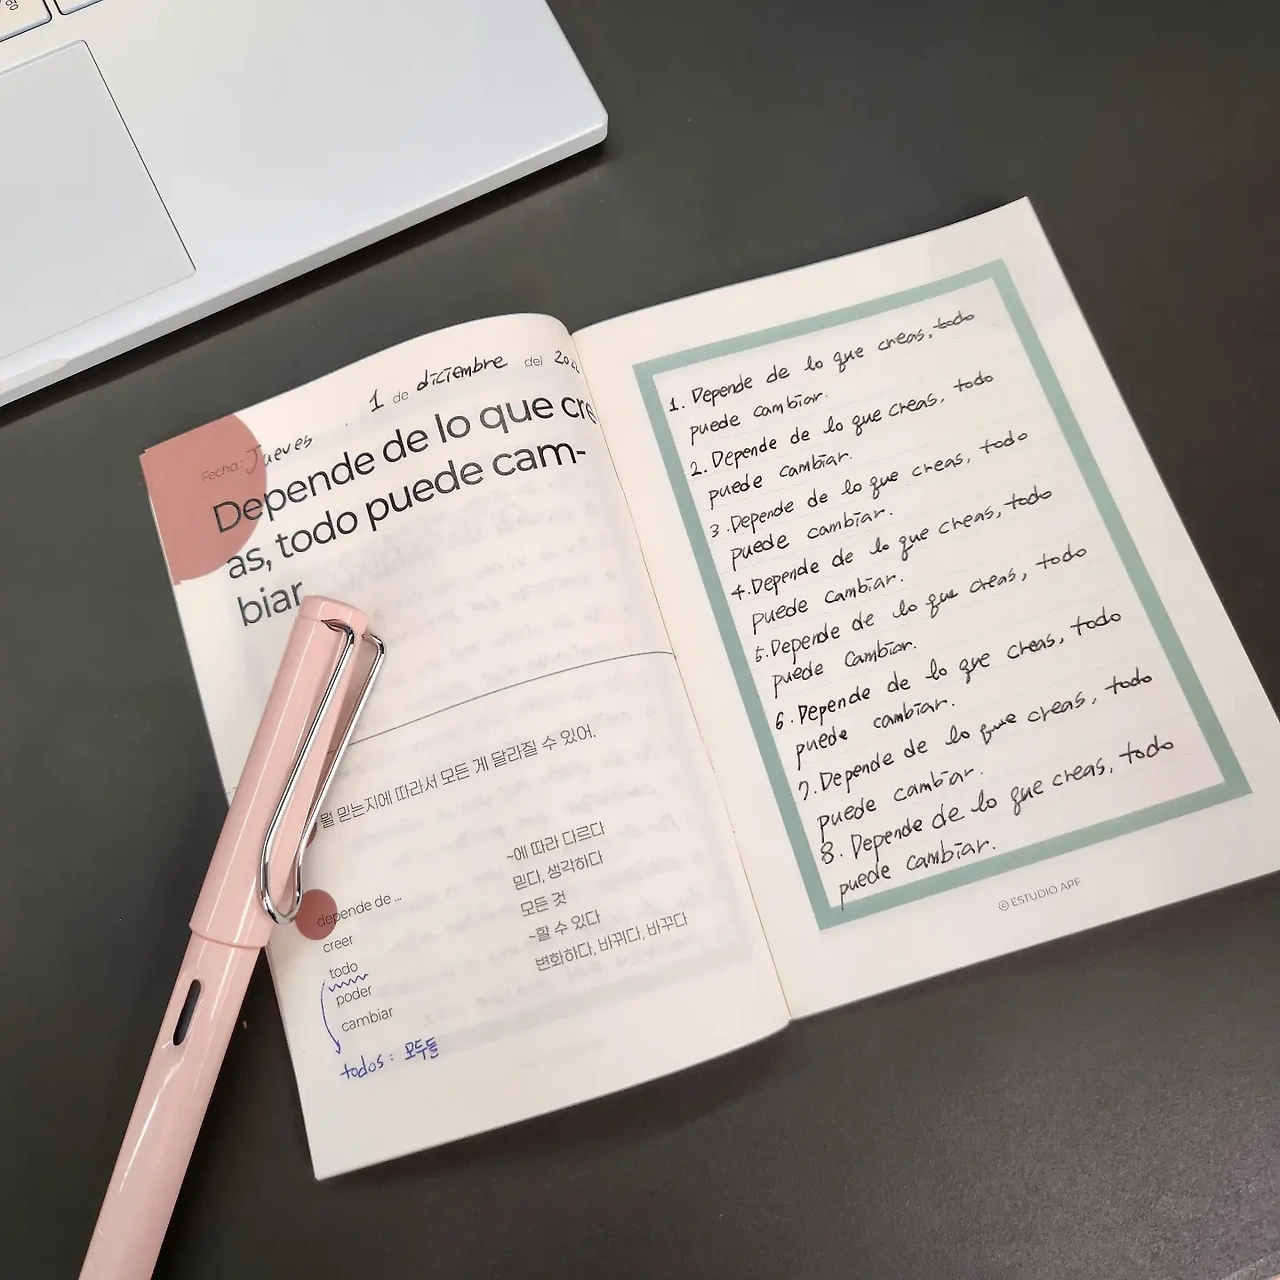 영
1 de diciembre del
Fecha: Jueves
Depende de lo que cre
as, todo puede cam-
biar
뭘 믿는지에 따라서 모든 게 달라질 수 있어.
depende de ... ~에 따라 다르다
creer 믿다, 생각하다
todo 모든 것
poder ~할 수 있다
cambiar 변화하다, 바뀌다, 바꾸다
todos : 모두들
1. Depende de lo que creas, todo
puede cambiar.
2. Depende de lo que creas, todo
puede cambiar.
3. Depende de lo que creas, todo
puede cambiar.
4. Depende de lo que creas, todo
puede cambiar.
5. Depende de lo que creas, todo
puede cambiar.
6. Depende de lo que creas, todo
puede cambiar.
7. Depende de lo que creas, todo
puede cambiar.
8. Depende de lo que creas, todo
puede cambiar.
© ESTUDIO APF